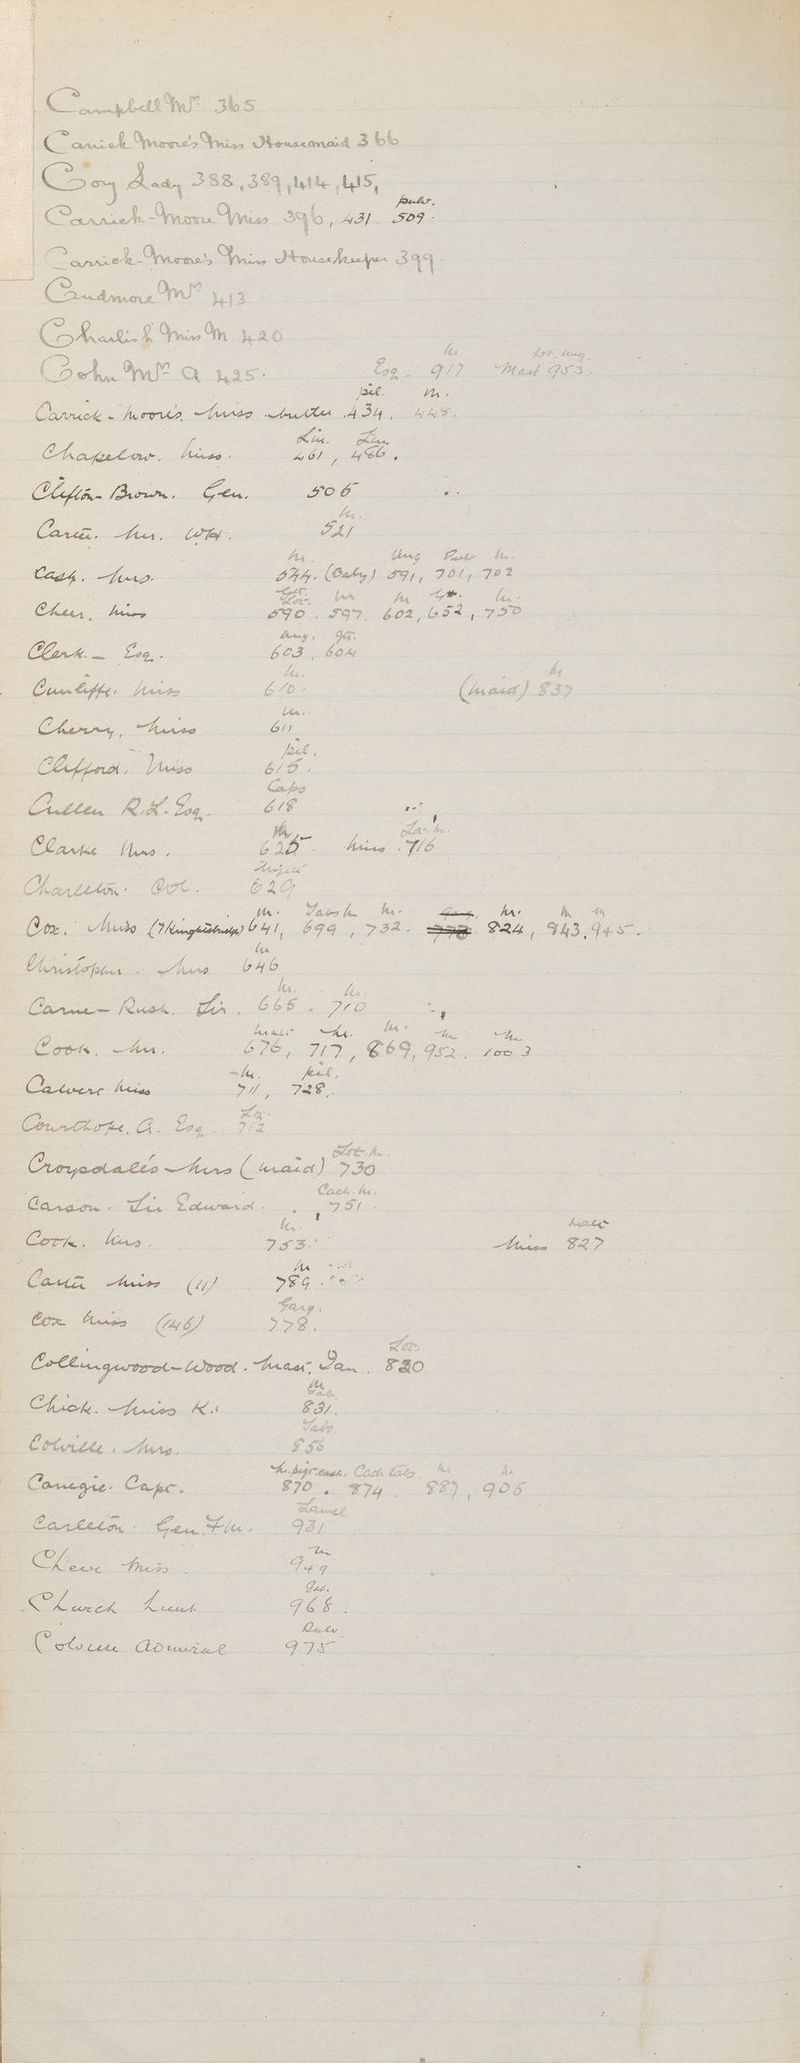 Campbell Mrs 365
Carrick Moore's Miss Housemaid 366
Cory Lady 388, 389, 414, 415,
pulv.
Carrick-Moore Miss 396, 431 509.
Carrick-Moore's Miss Housekeeper 399
Cudmore Mrs 413
Charlish Miss M 420
m. Lot. ung.
Cohn Mrs A 425. Esq. 917 Mast 953.
pil. m.
Carrick-Moore's Miss butler 434, 448.
Lin. Lin.
Chapelow. Miss. 461, 486.
Clifton-Brown. Gen. 505
m.
Carter. Mr. W.H. 521
m. Ung Pulv m.
Cash. Mrs. 544. (Baby) 591, 701, 702
Gtt. Lot. m m Gtt. m.
Cheer. Miss 590. 597. 602, 652, 750
ung. gtt.
Clerk - Esq. 603. 604
m. m
Cunliffe. Miss 610. (Maid) 837
m.
Cherry. Miss 611
pil.
Clifford. Miss 615.
Caps
Cullen R.L. Esq. 618
m Lot. m.
Clarke Mrs. 625. Miss. 716
Charleton. Col. 629
m. Tabs m. m. Garg. m. m m
Cox. Miss 641, 699, 732. 778 824, 843, 945.
m
Christopher. Mrs 646
m. m.
Carne-Rush. Sir. 665. 710
mist m. m. m m
Cook. Mr. 676, 717, 869, 952. 1003
m. pil.
Calvert Miss 711, 728.
Lot.
Courthope. A. Esq. 712
Lot. m.
Croysdale's Mrs (Maid) 730
Cach. m.
Carson. Sir Edward. 751.
m. mist
Cook. Mrs. 753. Miss 827
m
Carter Miss (11) 789.
Garg.
Cox Miss (146) 778.
Lot.
Collingwood-Wood. Mast. Ian. 820
m
Chick. Miss K. 831.
Tabs
Colville. Mrs. 856
Cach tabs. m m
Carnegie. Capt. 870. 874. 887, 905
Carleton. Gen. F.M. 931
m
Cheer Miss. 949
Gtt.
Church Lieut. 968.
Pulv.
Colvin Admiral 975